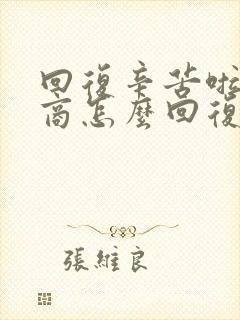 回復辛苦啦
商怎麼回復
張維良